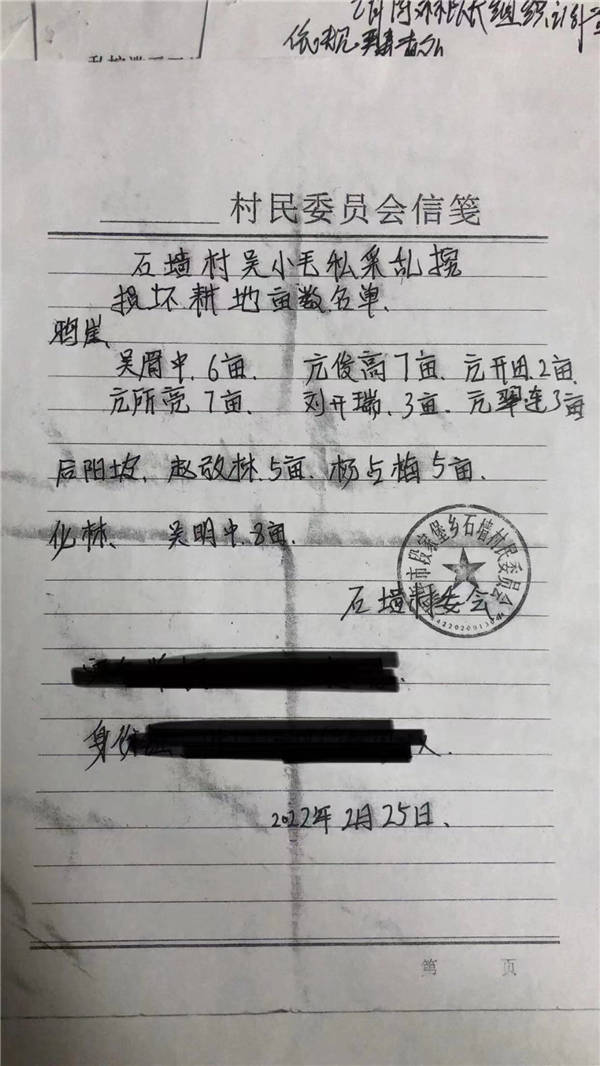 依规严肃
村民委员会信笺
石墙村吴小毛私采乱挖
损坏耕地亩数名单.
吴眉中.6亩. 亢俊高7亩. 亢开田.2亩.
亢所亮7亩. 刘开瑞.3亩. 亢翠连3亩
后阳坡. 赵改林.5亩. 杨占梅5亩.
化林、 吴明中.8亩.
市段家堡乡石墙村民委员会
石墙村委会
身份
2022年2月25日.
第 页